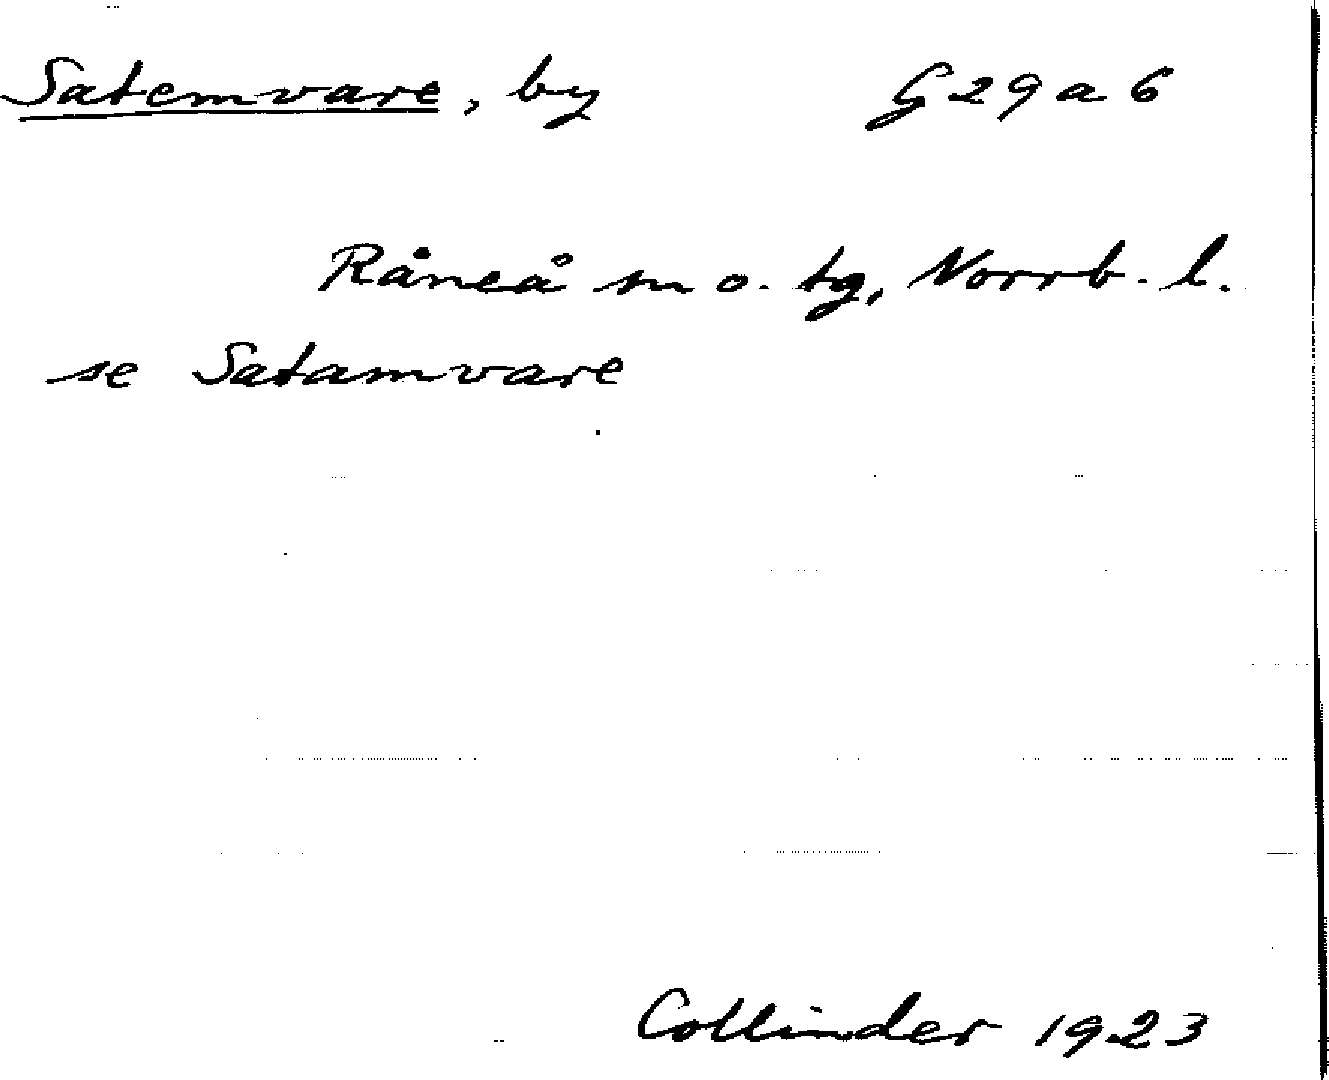 Satemvare, by G 29 a 6
Råneå sn o. tg, Norrb. l.
se Satamvare
Collinder 1923